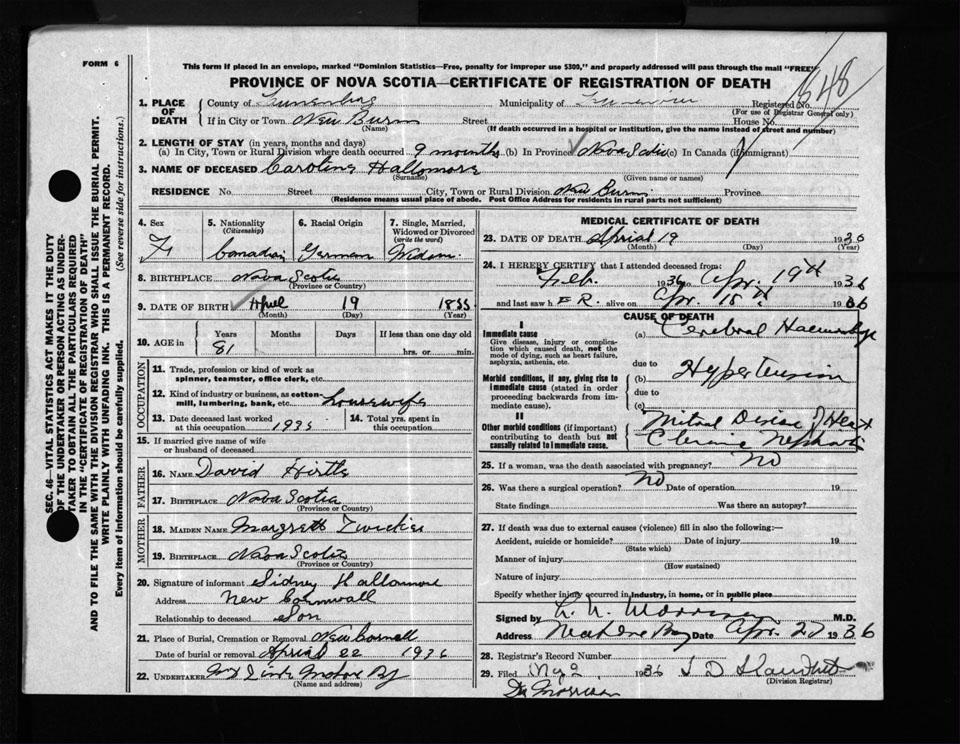 FORM 6
This form if placed in an envelope, marked "Dominion Statistics—Free, penalty for improper use $300," and properly addressed will pass through the mail "FREE"
PROVINCE OF NOVA SCOTIA—CERTIFICATE OF REGISTRATION OF DEATH
548
1. PLACE OF DEATH
County of Lunenburg Municipality of Registered No.
(For use of Registrar General only)
If in City or Town New Burn Street House No.
(Name) (If death occurred in a hospital or institution, give the name instead of street and number)
2. LENGTH OF STAY (in years, months and days)
(a) In City, Town or Rural Division where death occurred 9 mounths (b) In Province Nova Scotia (c) In Canada (if immigrant)
3. NAME OF DECEASED Caroline Hallomore
(Surname) (Given name or names)
RESIDENCE No. Street City, Town or Rural Division New Burn Province
(Residence means usual place of abode. Post Office Address for residents in rural parts not sufficient)
4. Sex
F
5. Nationality
(Citizenship)
Canadian
6. Racial Origin
German
7. Single, Married, Widowed or Divorced
(write the word)
Widow
8. BIRTHPLACE Nova Scotia
(Province or Country)
9. DATE OF BIRTH April 19 1855
(Month) (Day) (Year)
10. AGE in
Years Months Days If less than one day old
81 hrs. or min.
OCCUPATION
11. Trade, profession or kind of work as spinner, teamster, office clerk, etc.
12. Kind of industry or business, as cotton-mill, lumbering, bank, etc. housewife
13. Date deceased last worked at this occupation 1935
14. Total yrs. spent in this occupation
15. If married give name of wife or husband of deceased
FATHER
16. NAME David Hirtle
17. BIRTHPLACE Nova Scotia
(Province or Country)
MOTHER
18. MAIDEN NAME Margrett Zwicker
19. BIRTHPLACE Nova Scotia
(Province or Country)
20. Signature of informant Sidney Hallomore
Address New Cornwall
Relationship to deceased Son
21. Place of Burial, Cremation or Removal New Cornwall
Date of burial or removal April 22 1936
22. UNDERTAKER
(Name and address)
MEDICAL CERTIFICATE OF DEATH
23. DATE OF DEATH April 19 1936
(Month) (Day) (Year)
24. I HEREBY CERTIFY that I attended deceased from:
Feb. 1936 to Apr. 19th 1936
and last saw h ER. alive on Apr. 18th 1936
CAUSE OF DEATH
I
Immediate cause
Give disease, injury or complication which caused death, not the mode of dying, such as heart failure, asphyxia, asthenia, etc.
(a) Cerebral Haemorrhage
due to
Morbid conditions, if any, giving rise to immediate cause (stated in order proceeding backwards from immediate cause).
(b) Hypertension
due to
(c)
II
Other morbid conditions (if important) contributing to death but not causally related to immediate cause.
Mitral Disease of Heart
Chronic Nephritis
25. If a woman, was the death associated with pregnancy? No
26. Was there a surgical operation? No Date of operation 19
State findings Was there an autopsy?
27. If death was due to external causes (violence) fill in also the following:—
Accident, suicide or homicide? Date of injury 19
(State which)
Manner of injury
(How sustained)
Nature of injury
Specify whether injury occurred in industry, in home, or in public place
Signed by Morrison M.D.
Address Date Apr. 27 1936
28. Registrar's Record Number
29. Filed 1936
(Division Registrar)
Dr Morrison
SEC. 46—VITAL STATISTICS ACT MAKES IT THE DUTY
OF THE UNDERTAKER OR PERSON ACTING AS UNDER-
TAKER TO OBTAIN ALL THE PARTICULARS REQUIRED
IN THE "CERTIFICATE OF REGISTRATION OF DEATH"
AND TO FILE THE SAME WITH THE DIVISION REGISTRAR WHO SHALL ISSUE THE BURIAL PERMIT.
WRITE PLAINLY WITH UNFADING INK. THIS IS A PERMANENT RECORD.
Every item of information should be carefully supplied. (See reverse side for instructions.)